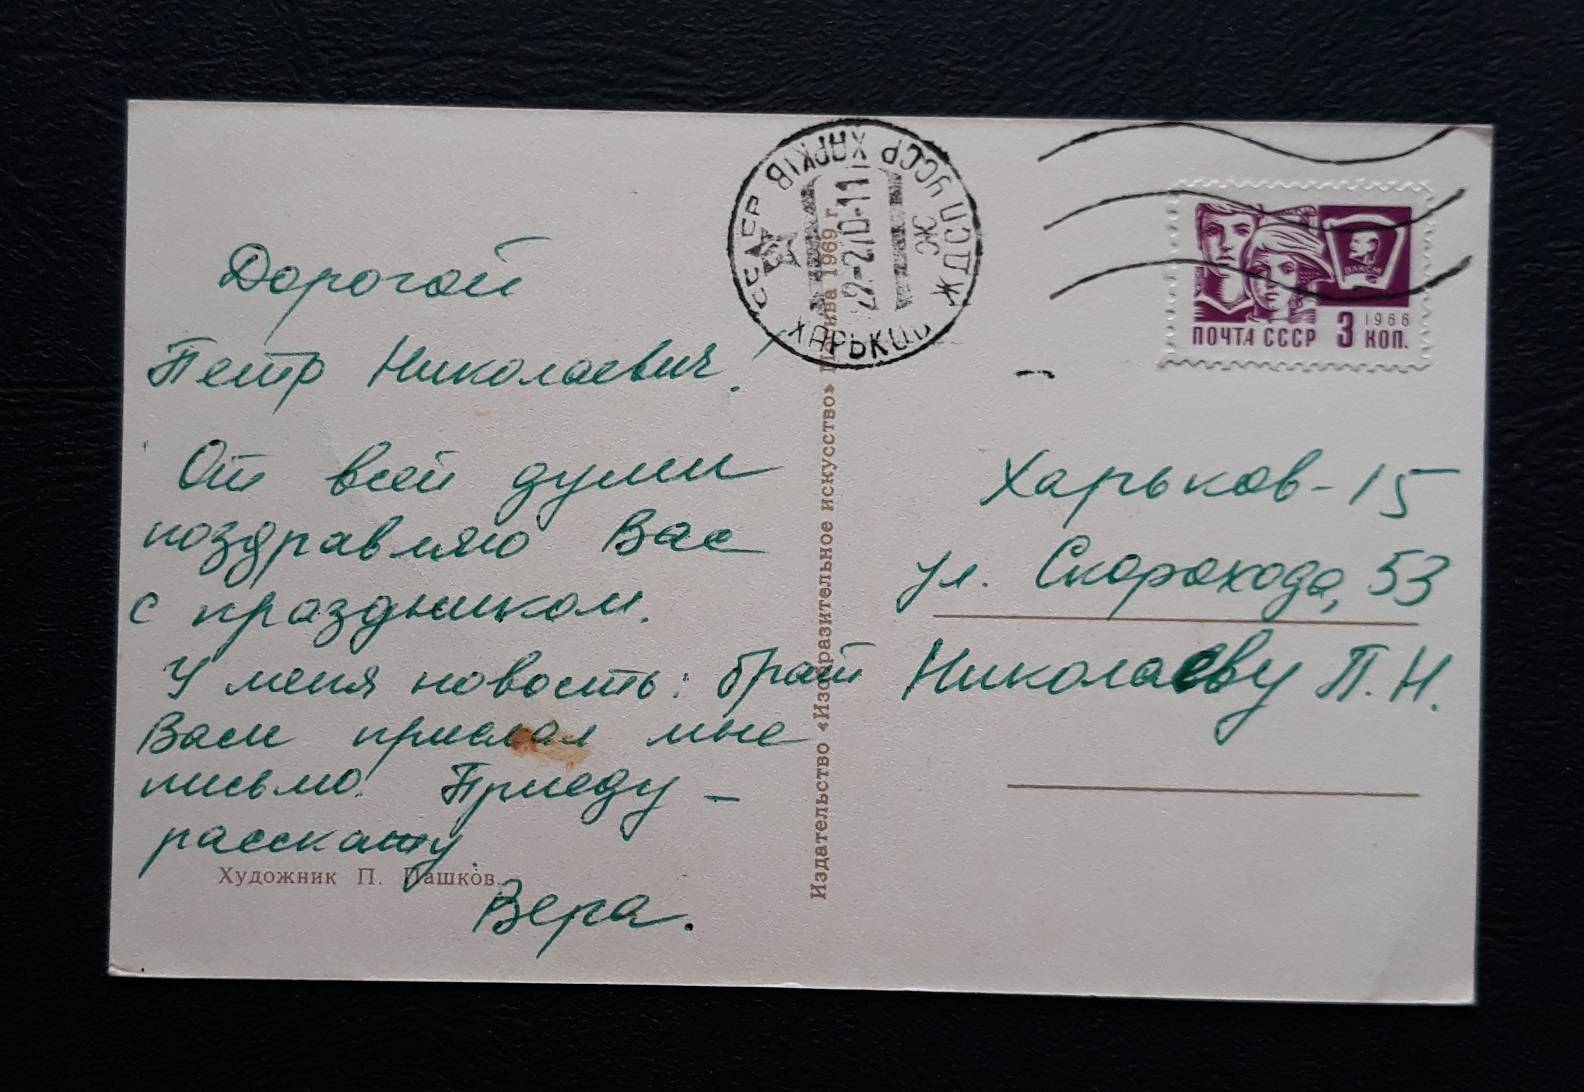 Дорогой
Петр Николаевич!
От всей души
поздравляю Вас
с праздником.
У меня новость: брат
Ваш прислал мне
письмо. Приеду –
расскажу.
Вера.
Художник П. Пашков.
Издательство «Изобразительное искусство» Москва 1969 г.
СССР ХАРКІВ УССР
ХАРЬКОВ
Ж
ПОЧТА СССР 3 КОП.
1966
ВЛКСМ
Харьков-15
ул. Скорохода, 53
Николаеву П.Н.